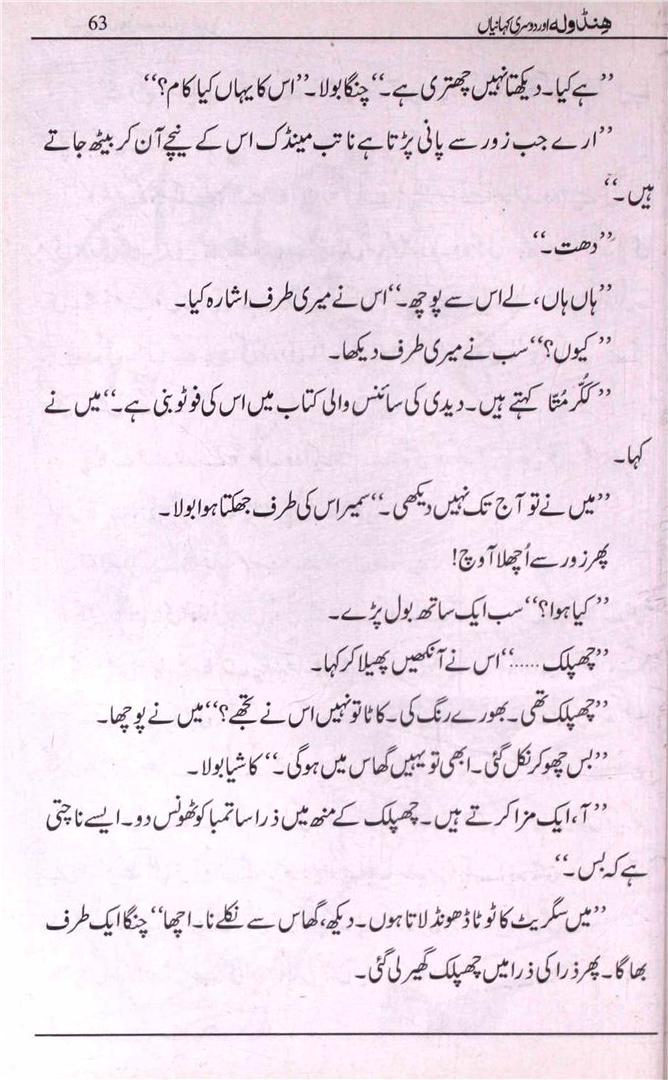 ہنڈولہ اور دوسری کہانیاں 63
’’ہے کیا۔ دیکھتا نہیں چھتری ہے۔‘‘ چنگا بولا۔ ’’اس کا یہاں کیا کام؟‘‘
’’ارے جب زور سے پانی پڑتا ہے نا تب مینڈک اس کے نیچے آن کر بیٹھ جاتے
ہیں۔‘‘
’’دھت۔‘‘
’’ہاں ہاں، لے اس سے پوچھ۔‘‘ اس نے میری طرف اشارہ کیا۔
’’کیوں؟‘‘ سب نے میری طرف دیکھا۔
’’ککُّر مُتّا کہتے ہیں۔ دیدی کی سائنس والی کتاب میں اس کی فوٹو بنی ہے۔‘‘ میں نے
کہا۔
’’میں نے تو آج تک نہیں دیکھی۔‘‘ سمیر اس کی طرف جھکتا ہوا بولا۔
پھر زور سے اُچھلا آوچ!
’’کیا ہوا؟‘‘ سب ایک ساتھ بول پڑے۔
’’چھپلک ......‘‘ اس نے آنکھیں پھیلا کر کہا۔
’’چھپلک تھی۔ بھورے رنگ کی۔ کاٹا تو نہیں اس نے تجھے؟‘‘ میں نے پوچھا۔
’’بس چھو کر نکل گئی۔ ابھی تو یہیں گھاس میں ہوگی۔‘‘ کاشیا بولا۔
’’آ، ایک مزا کرتے ہیں۔ چھپلک کے منھ میں ذرا سا تمباکو ٹھونس دو۔ ایسے ناچتی
ہے کہ بس۔‘‘
’’میں سگریٹ کا ٹوٹا ڈھونڈ لاتا ہوں۔ دیکھ، گھاس سے نکلے نا۔ اچھا‘‘ چنگا ایک طرف
بھاگا۔ پھر ذرا کی ذرا میں چھپلک گھیر لی گئی۔